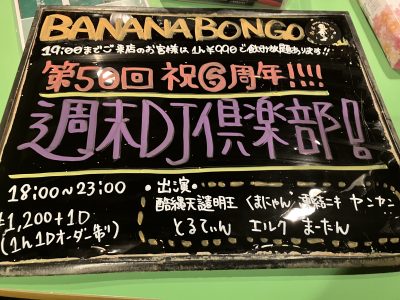 BANANA BONGO
19:00までご来店のお客様は1h¥990で飲み放題あります!!
第50回 祝6周年!!!!
週末DJ倶楽部!
18:00~23:00
¥1,200+1D
(1h1Dオーダー制)
・出演・
酷縞天謎明王 くまにゃん ニキ ヤンヤン
とるてぃん エルク まーたん